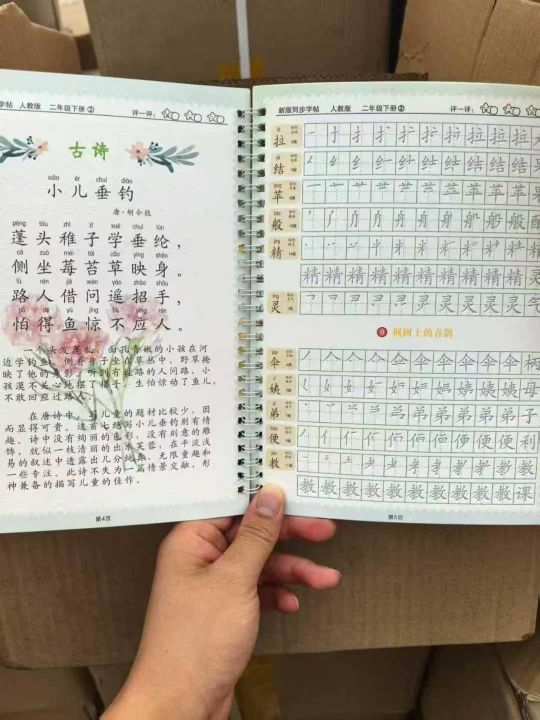 字帖 人教版 二年级下册② 评一评:
古诗
xiǎo ér chuí diào
小儿垂钓
唐·胡令能
péng tóu zhì zǐ xué chuí lún
蓬头稚子学垂纶,
cè zuò méi tái cǎo yìng shēn
侧坐莓苔草映身。
lù rén jiè wèn yáo zhāo shǒu
路人借问遥招手,
pà dé yú jīng bú yìng rén
怕得鱼惊不应人。
一个头发蓬乱、面孔青嫩的小孩在河
边学钓鱼,侧着身子坐在草丛中,野草掩
映了他的身影。听到有过路的人问路,小
孩漠不关心地摆了摆手,生怕惊动了鱼儿,
不敢回应过路人。
在唐诗中,写儿童的题材比较少,因
而显得可贵。这首七绝写小儿垂钓别有情
趣。诗中没有绚丽的色彩,没有刻意的雕
饰,就似一枝清丽的出水芙蓉,在平淡浅
易的叙述中透露出几分纯真、无限童趣和
一些专注。此诗不失为一篇情景交融、形
神兼备的描写儿童的佳作。
第4页
新版同步字帖 人教版 二年级下册② 评一评:
拉 拉 拉 拉 拉
结 结 结 结 结 结 果
苹 苹 苹 苹 苹 果
般 般 般 般
精 精 精 精
精 精 精 精 精 精 精 精
灵 灵 灵 灵 灵 气
9 枫树上的喜鹊
伞 伞 伞 伞 伞 伞 伞 柄
姨 姨 姨 姨 母
弟 弟 弟 弟 弟 子
便 便 便 便 便 利
教 教
教 教 教 教 教 教 教 教 课
第5页